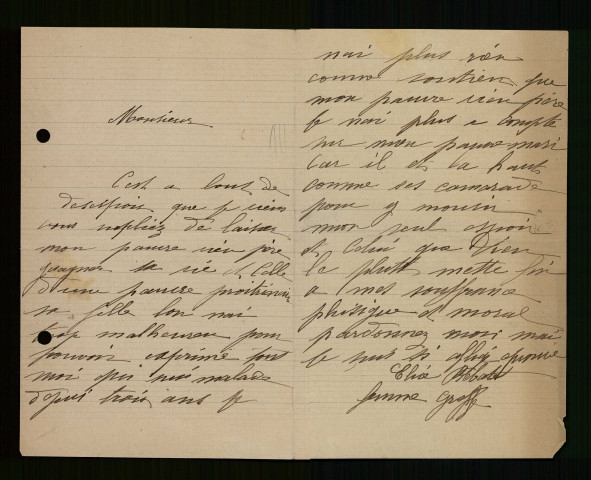 Monsieur
C'est a bout de
que je viens
vous supliez de laisser
mon pauvre vieu père
guagner sa vie et Celle
d'une pauvre poitrinaire
sa fille l'on nai
trop malheureu pour
pouvoir exprimé tout
moi qui sui malade
depui trois ans je
nai plus rien
comme soutien que
mon pauvre vieu père
Je nai plus a compté
sur mon pauvre mari
Car il et la haut
comme ses camarade
pour y mourir
mon seul espoir
et Celui que Dieu
le plutot mette fin
a mes souffrance
phisique et moral
pardonnez moi mai
Je sui si
Femme